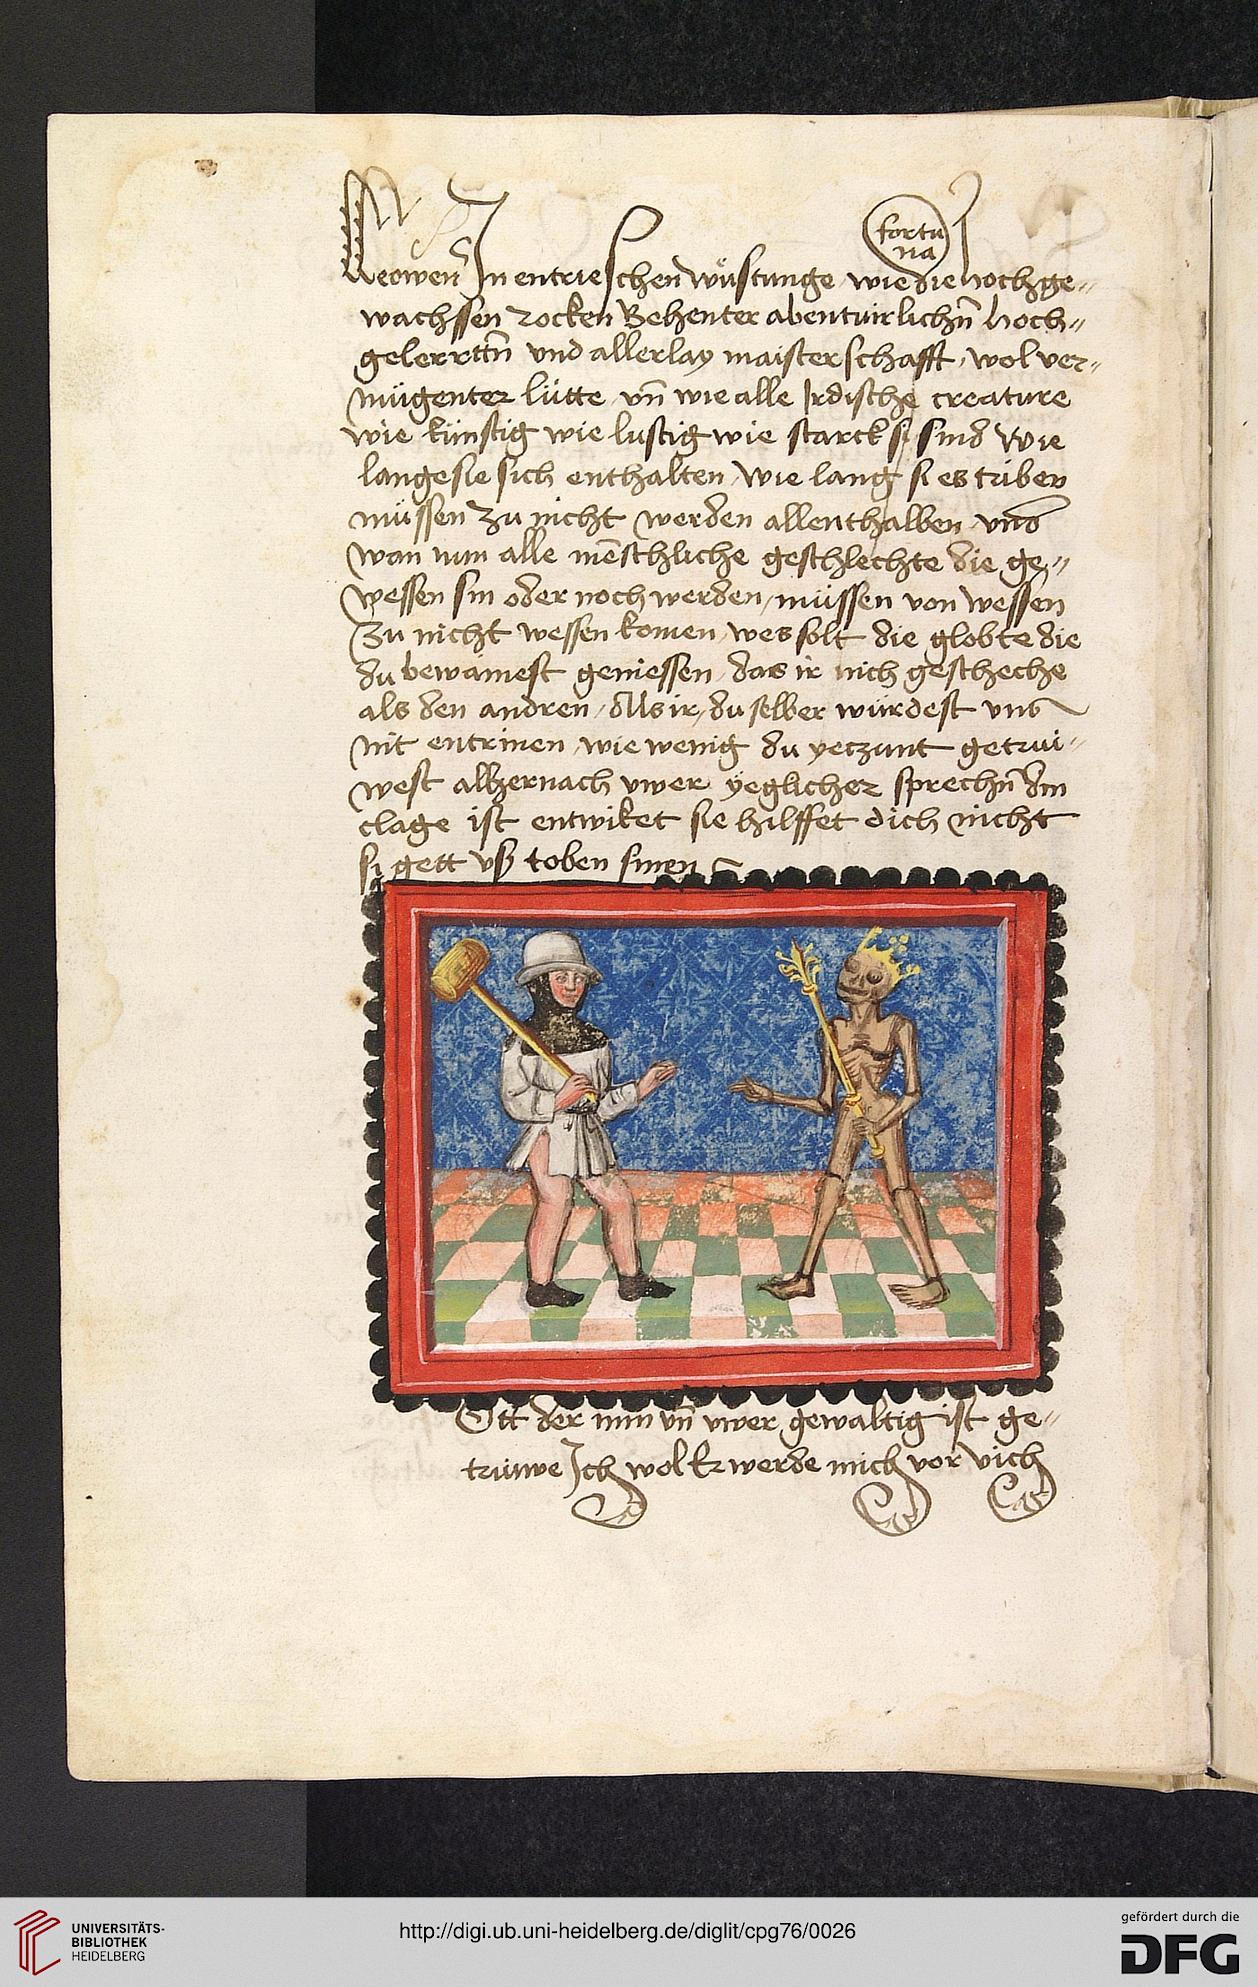 fortu
na
Leowen In entrieschen wüstunge wie die hochge„
wachssen rocken Behenter abentuirlichn̄ hoch„
gelerrttn̄ vnd allerlay maisterschafft, wol ver„
mügenter lütte vn̄ wie alle Irdische creature
wie künstig wie lustig wie starck si sind Wie
lange sie sich enthalten, wie lang si es triben
müssen zu nicht werden allenthalben vnd
wan nun alle mēschliche geschlechte die ge„
wessen sin oder noch werden, müssen von wessen
zu nicht wessen komen, wes solt die globte die
du bewainest geniessen, das ir nich gescheche
als den andren, Als ir, du selber würdest vns
nit entrinen, wie wenig du yeczunt getrui„
west alhernach vwer yeglicher sprechn̄ din
clage ist entwiket sie hilffet dich nicht
si gett vß toben sinen
Ott der min vn̄ vwer gewaltig ist ge„
trüwe Ich wol Er werde mich vor vich
UNIVERSITÄTS-
BIBLIOTHEK
HEIDELBERG
http://digi.ub.uni-heidelberg.de/diglit/cpg76/0026
gefördert durch die
DFG